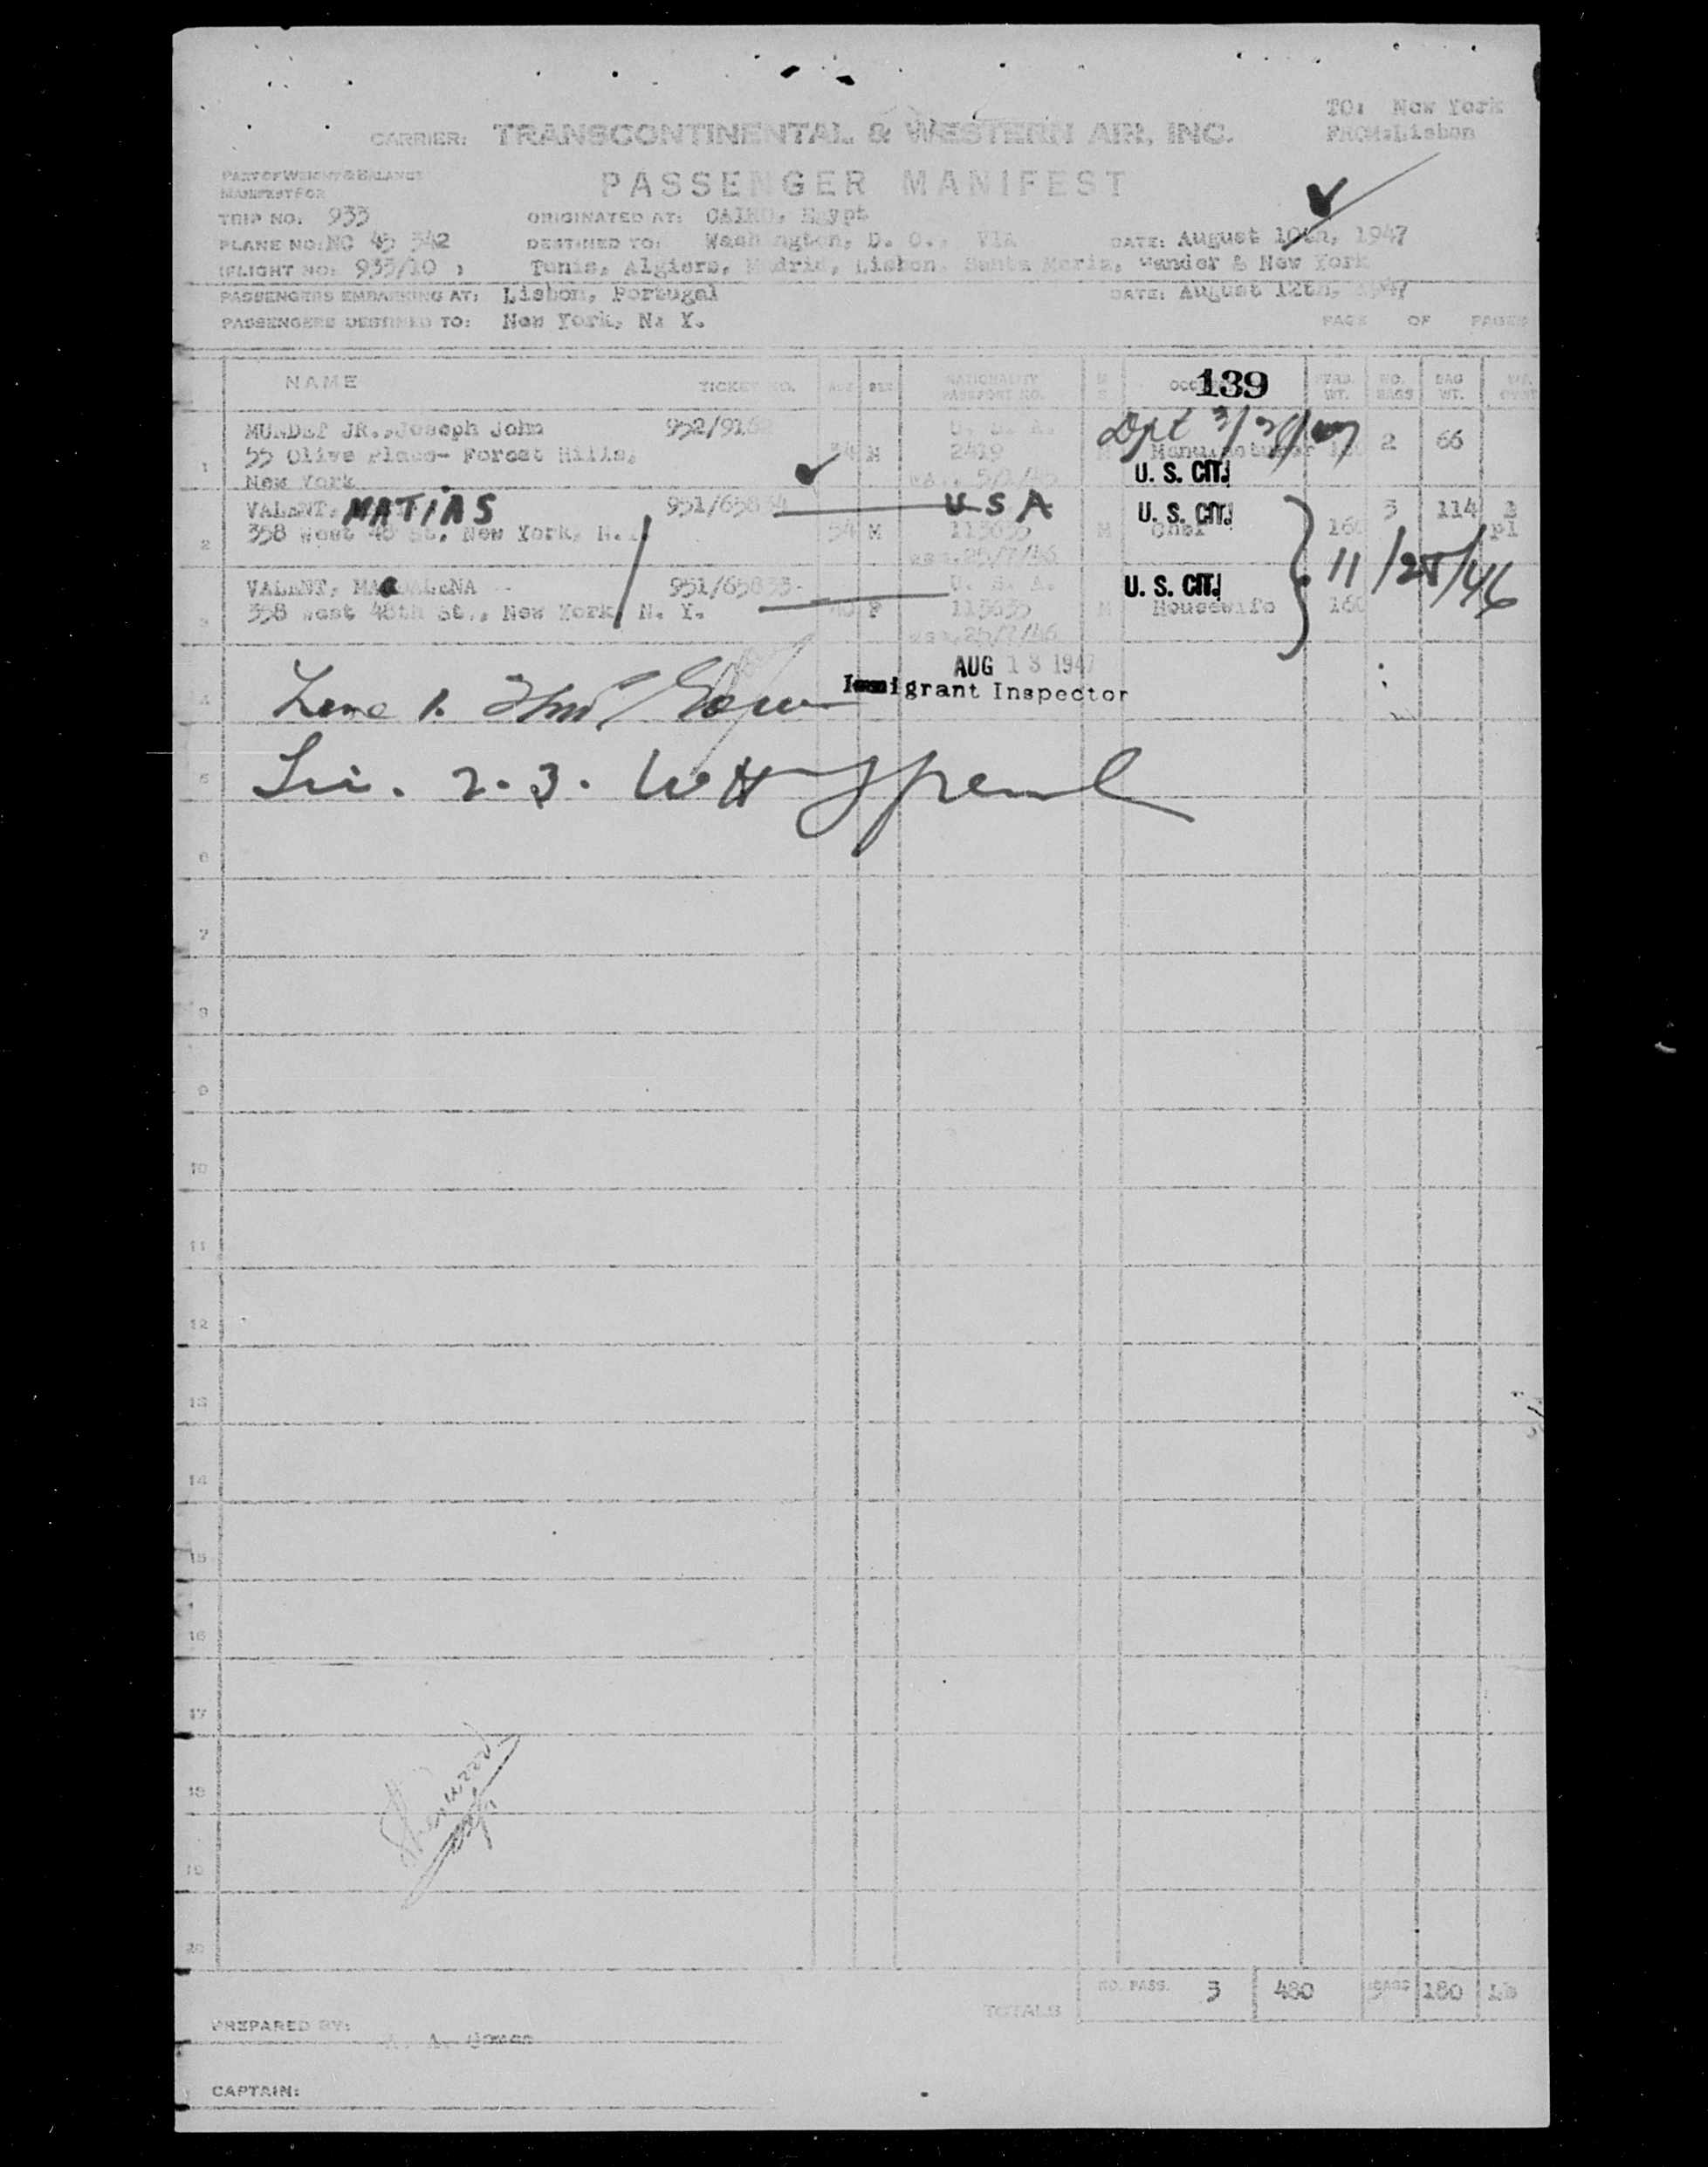 TO: New York
CARRIER: TRANSCONTINENTAL & WESTERN AIR, INC.
FROM:Lisbon
PART OF WEIGHT & BALANCE
MANIFEST FOR
PASSENGER MANIFEST
TRIP NO. 933
ORIGINATED AT: CAIRO, Egypt
PLANE NO: NC 45 342
DESTINED TO: Washington, D. C., VIA
DATE: August 10th, 1947
(FLIGHT NO: 933/10 )
Tunis, Algiers, Madrid, Lisbon, Santa Maria, Gander & New York
PASSENGERS EMBARKING AT: Lisbon, Portugal
DATE: August 12th, 1947
PASSENGERS DESTINED TO: New York, N. Y.
PAGE OF PAGES
NAME TICKET NO. AGE SEX NATIONALITY PASSPORT NO. 139 WT. NO. BAGS BAG WT.
MUNDET JR., Joseph John 952/916 U. S. A. Dpt
1 55 Olive Place- Forest Hills, 34 M 2419 M Manufacturer 2 66
New York U. S. CIT.
VALENT, MATIAS 951/658 USA U. S. CIT. 3 114
2 358 West 48 St. New York, N. 54 M 113635 M Chef 160
25/7/46
11/25/46
VALENT, MAGDALENA 951/65833 U. S. A. U. S. CIT.
3 358 West 48th St., New York, N. Y. F 113635 M Housewife 160
25/7/46
AUG 13 1947
4 Immigrant Inspector
5 2-3. WH
6
7
8
9
10
11
12
13
14
15
16
17
18
19
20
TOTALS NO. PASS. 3 480 BAGS 180
PREPARED BY: A.
CAPTAIN: